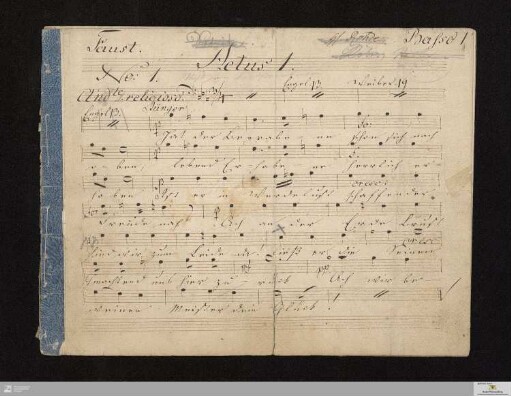 Faust. Basso 1
Actus 1.
No: 1. Engel 13. Weiber 19
Andte religioso
Engel 13. Jünger
Hat der Begrabe - ne schon sich nach
o - ben, lebend Er - habe - ne herrlich er -
hoben Ist er in Werdelust schaffender
Freude nah! Ach an der Erde Brust
sind wir zum Leide da! Ließ er die Seinen
schmachtend uns hier zu - rück Ach wir be
weinen Meister dein Glück!